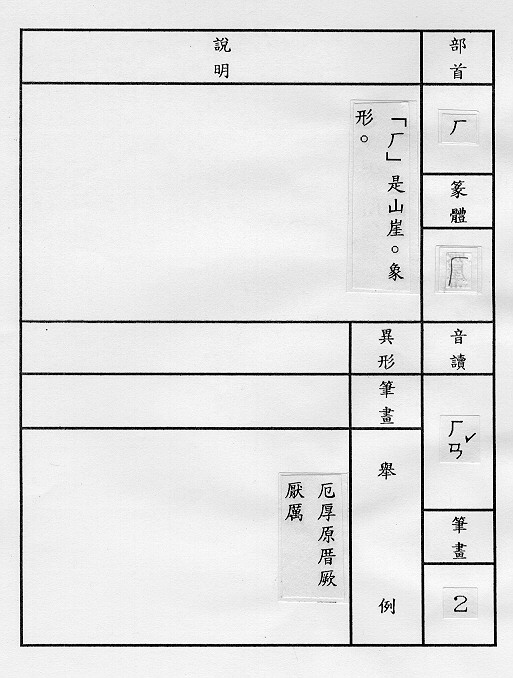 部首
厂
篆體
厂
音讀
ㄏㄢˇ
筆畫
2
說明
「厂」是山崖。象
形。
異形
筆畫
舉例
厄厚原厝厥
厭厲